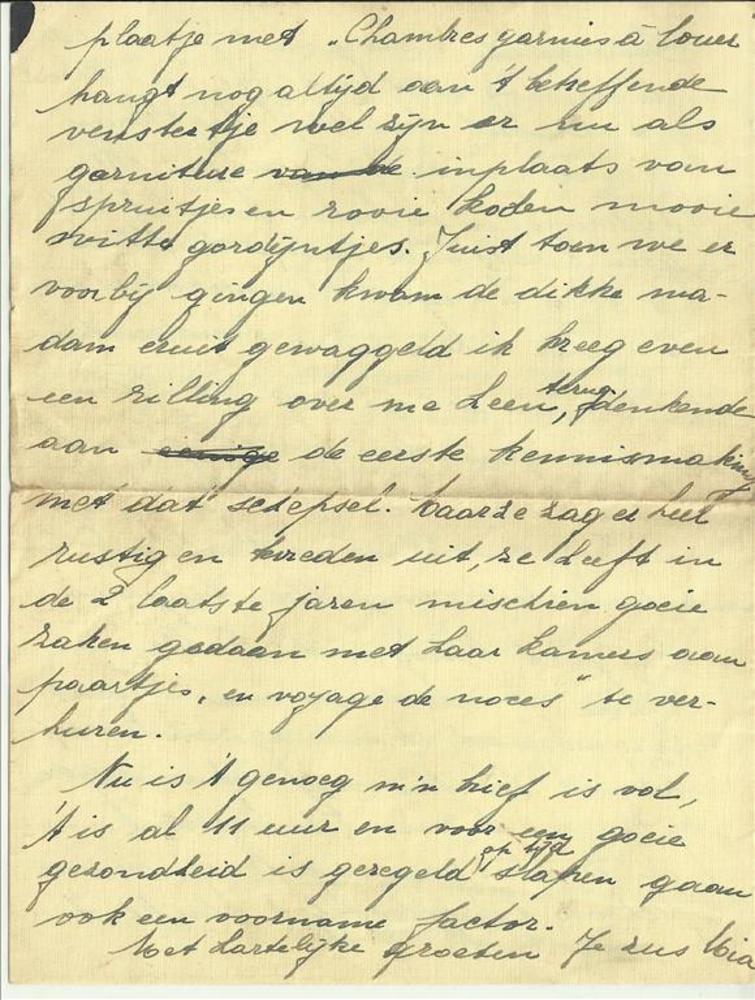 plaatje met „Chambres garnies à louer
hangt nog altijd aan 't betreffende
venstertje wel zijn er nu als
garniture van de inplaats van
spruitjes en rooie koolen mooie
witte gordijntjes. Juist toen we er
voorbij gingen kwam de dikke ma-
dam eruit gewaggeld ik kreeg even
een rilling over me heen, terug denkende
aan eenige de eerste kennismaking
met dat schepsel. Maar ze zag er heel
rustig en tevreden uit, ze heeft in
de 2 laatste jaren mischien goeie
zaken gedaan met haar kamers aan
paartjes „en voyage de noces" te ver-
huren.
Nu is 't genoeg m'n brief is vol,
't is al 11 uur en voor een goeie
gezondheid is geregeld op tijd slapen gaan
ook een voorname factor.
Met hartelijke groeten Je zus Mia